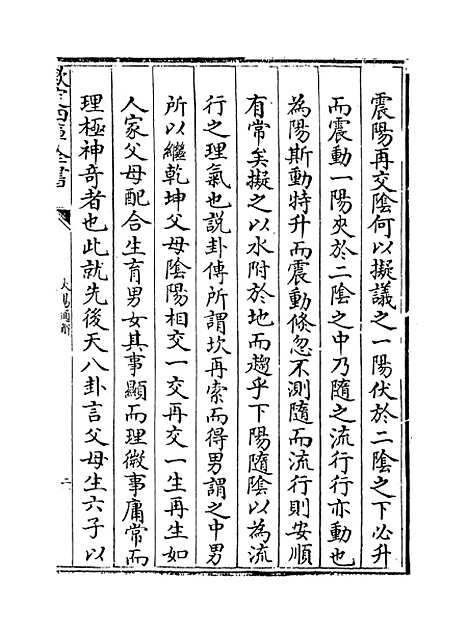 震陽再交陰何以擬議之一陽伏於二陰之下必升
而震動一陽夾於二陰之中乃隨之流行行亦動也
為陽斯動特升而震動倏忽不測隨而流行則安順
有常矣擬之以水附於地而趨乎下陽隨陰以為流
行之理氣也説卦傳所謂坎再索而得男謂之中男
所以繼乾坤父母陰陽相交一交再交一生再生如
人家父母配合生育男女其事顯而理微事庸常而
理極神奇者也此就先後天八卦言父母生六子以
欽定四庫全書
大易通解
二